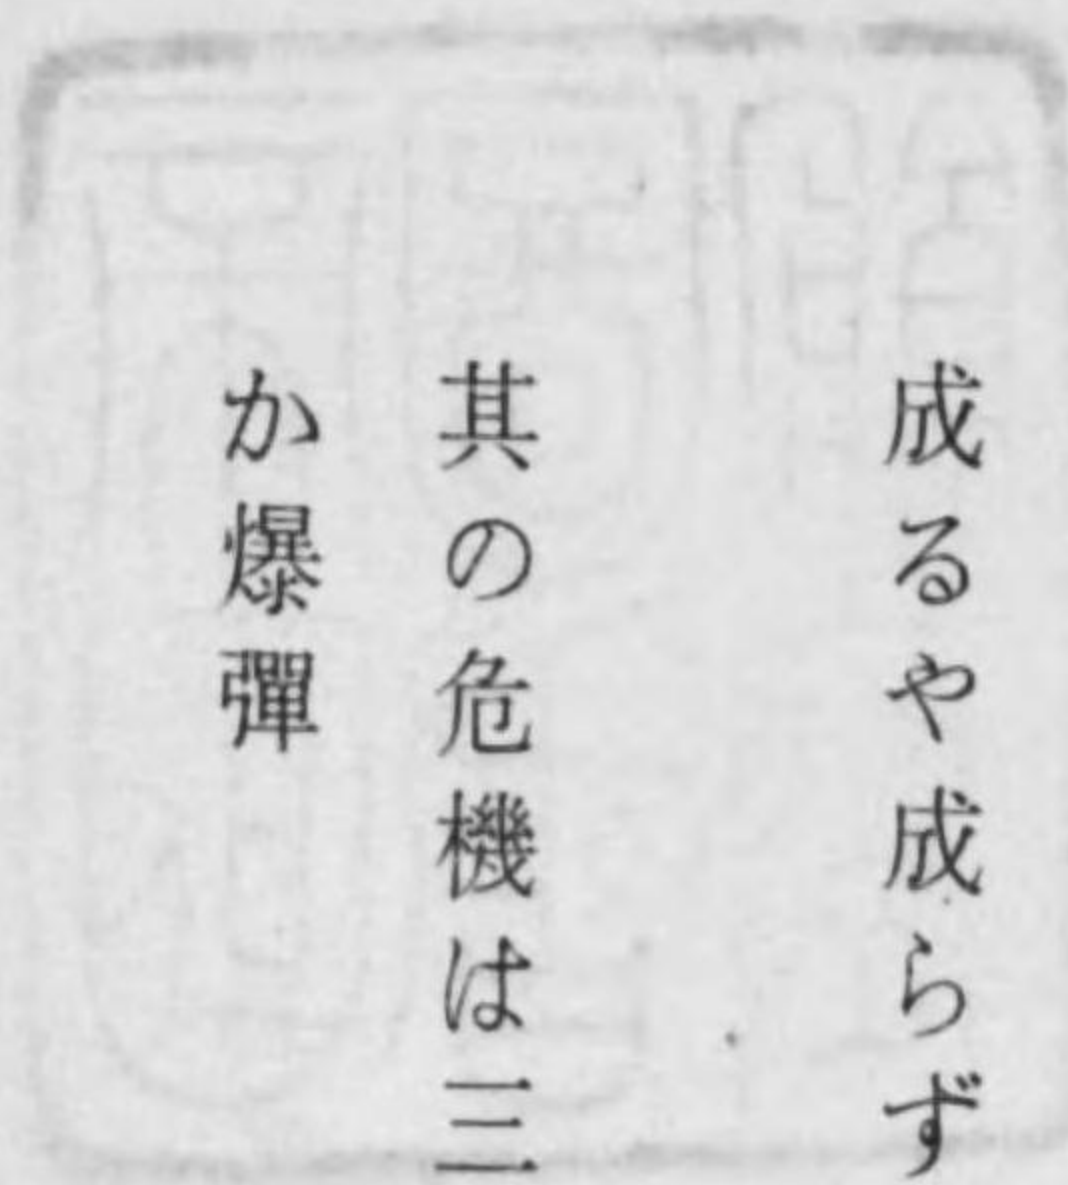 成るや成らず
其の危機は三
か爆彈